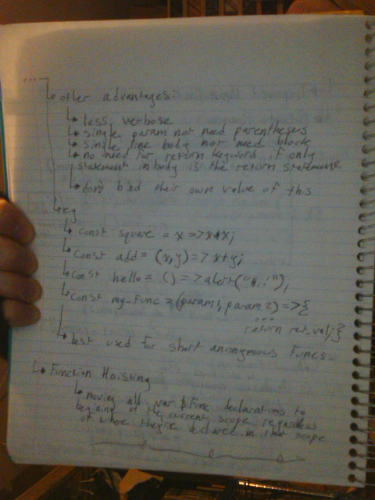 other advantages:
less verbose
single param not need parentheses
single line body not need block
no need for return keyword if only
statement in body is the return statement
bind their own value of this
eg
const square = x => x*x;
const add = (x,y) => x+y;
const hello = () => alert("...");
const my_func = (param1, param2) => {
...
return ret_val;}
best used for short anonymous funcs.
Function Hoisting
moving all var & func declarations to
beginning of the current scope regardless
of where they're declared in that scope